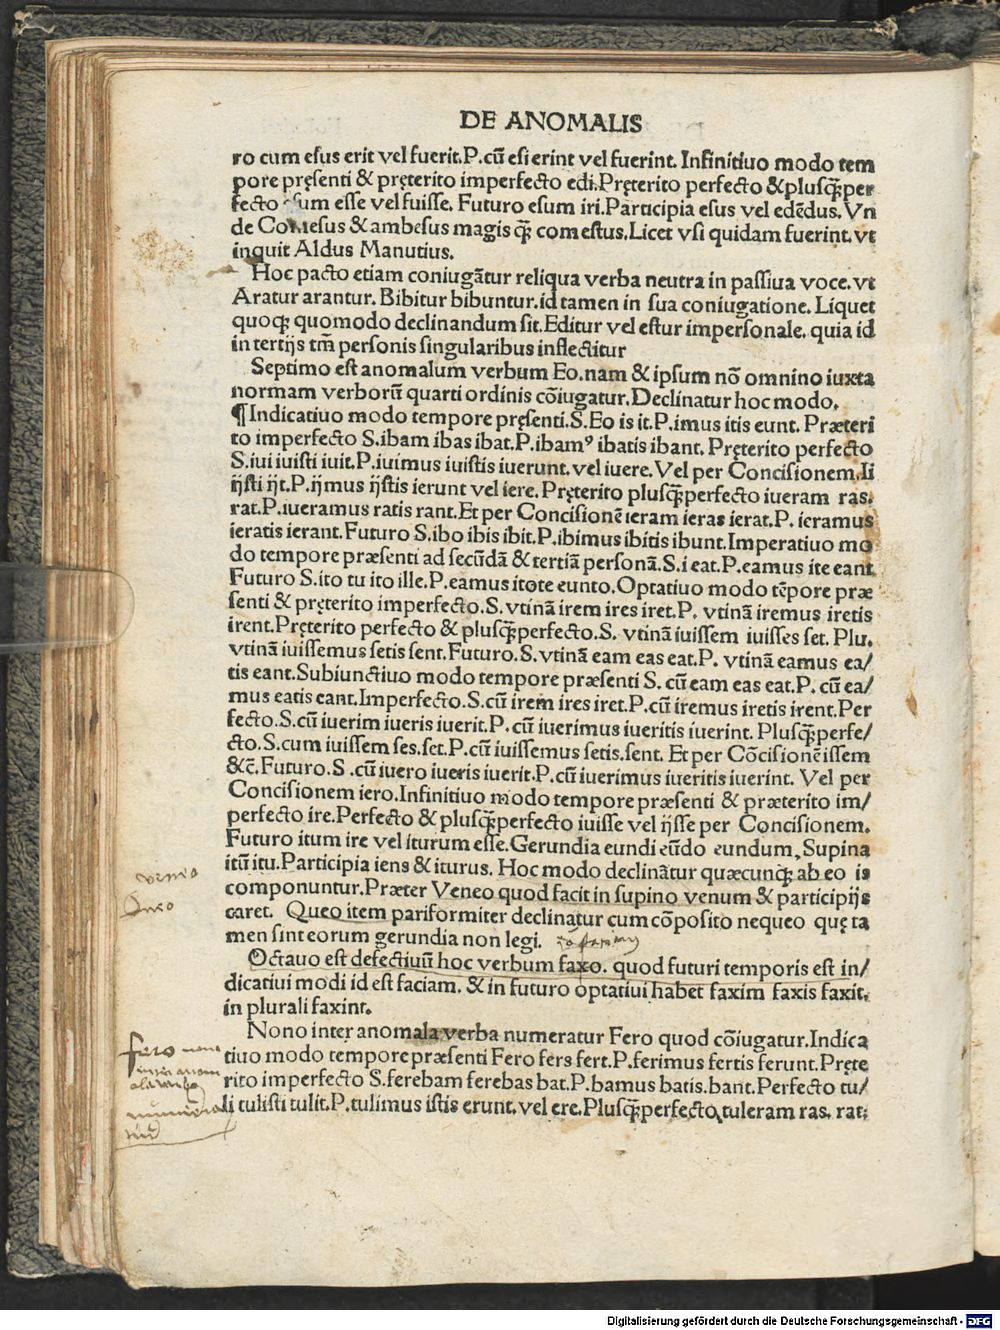 DE ANOMALIS
ro cum esus erit vel fuerit.P.cū esi erint vel fuerint. Infinitiuo modo tem
pore pręsenti & pręterito imperfecto edi.Pręterito perfecto &plusq̃per
fecto esum esse vel fuisse. Futuro esum iri.Participia esus vel edēdus. Vn
de Comesus & ambesus magis q̃ comestus.Licet vsi quidam fuerint. vt
inquit Aldus Manutius.
Hoc pacto etiam coniugātur reliqua verba neutra in passiua voce. vt
Aratur arantur. Bibitur bibuntur. id tamen in sua coniugatione. Liquet
quoq; quomodo declinandum sit.Editur vel estur impersonale. quia id
in tertijs tm̄ personis singularibus inflectitur
Septimo est anomalum verbum Eo.nam & ipsum nō omnino iuxta
normam verborū quarti ordinis cōiugatur.Declinatur hoc modo.
¶Indicatiuo modo tempore pręsenti.S.Eo is it.P.imus itis eunt. Præteri
to imperfecto S.ibam ibas ibat.P.ibamꝰ ibatis ibant. Pręterito perfecto
S.iui iuisti iuit.P.iuimus iuistis iuerunt. vel iuere. Vel per Concisionem.Ii
ijsti ijt.P.ijmus ijstis ierunt vel iere. Pręterito plusq̃perfecto iueram ras.
rat.P.iueramus ratis rant.Et per Concisionē ieram ieras ierat.P. ieramus
ieratis ierant. Futuro S.ibo ibis ibit.P.ibimus ibitis ibunt.Imperatiuo mo
do tempore præsenti ad secūdā & tertiā personā.S.i eat.P.eamus ite eant
Futuro S.ito tu ito ille.P.eamus itote eunto.Optatiuo modo tēpore præ
senti & pręterito imperfecto.S.vtinā irem ires iret.P. vtinā iremus iretis
irent.Pręterito perfecto & plusq̃perfecto.S. vtinā iuissem iuisses set. Plu.
vtinā iuissemus setis sent.Futuro.S.vtinā eam eas eat.P. vtinā eamus ea/
tis eant.Subiunctiuo modo tempore præsenti S. cū eam eas eat.P. cū ea/
mus eatis eant.Imperfecto.S.cū irem ires iret.P.cū iremus iretis irent.Per
fecto.S.cū iuerim iueris iuerit.P.cū iuerimus iueritis iuerint. Plusq̃perfe/
cto.S.cum iuissem ses.set.P.cū iuissemus setis.sent. Et per Cōcisionē issem
&c̄.Futuro.S .cū iuero iueris iuerit.P.cū iuerimus iueritis iuerint. Vel per
Concisionem iero.Infinitiuo modo tempore præsenti & præterito im/
perfecto ire.Perfecto & plusq̃perfecto iuisse vel ijsse per Concisionem.
Futuro itum ire vel iturum esse.Gerundia eundi eūdo eundum, Supina
itū itu.Participia iens & iturus. Hoc modo declinātur quæcunq; ab eo is
venio
componuntur.Præter Veneo quod facit in supino venum & participijs
Queo
caret. Queo item pariformiter declinatur cum cōposito nequeo quę ta
men sint eorum gerundia non legi.
Octauo est defectiuū hoc verbum faxo. quod futuri temporis est in/
dicatiui modi id est faciam. & in futuro optatiui habet faxim faxis faxit.
in plurali faxint.
Nono inter anomala verba numeratur Fero quod cōiugatur.Indica
fero nono
tiuo modo tempore præsenti Fero fers fert.P.ferimus fertis ferunt.Pręte
inter anom
rito imperfecto S.ferebam ferebas bat.P.bamus batis.bant.Perfecto tu/
ala verba
li tulisti tulit.P.tulimus istis erunt.vel ere.Plusq̃perfecto tuleram ras. rat:
Digitalisierung gefördert durch die Deutsche Forschungsgemeinschaft - DFG